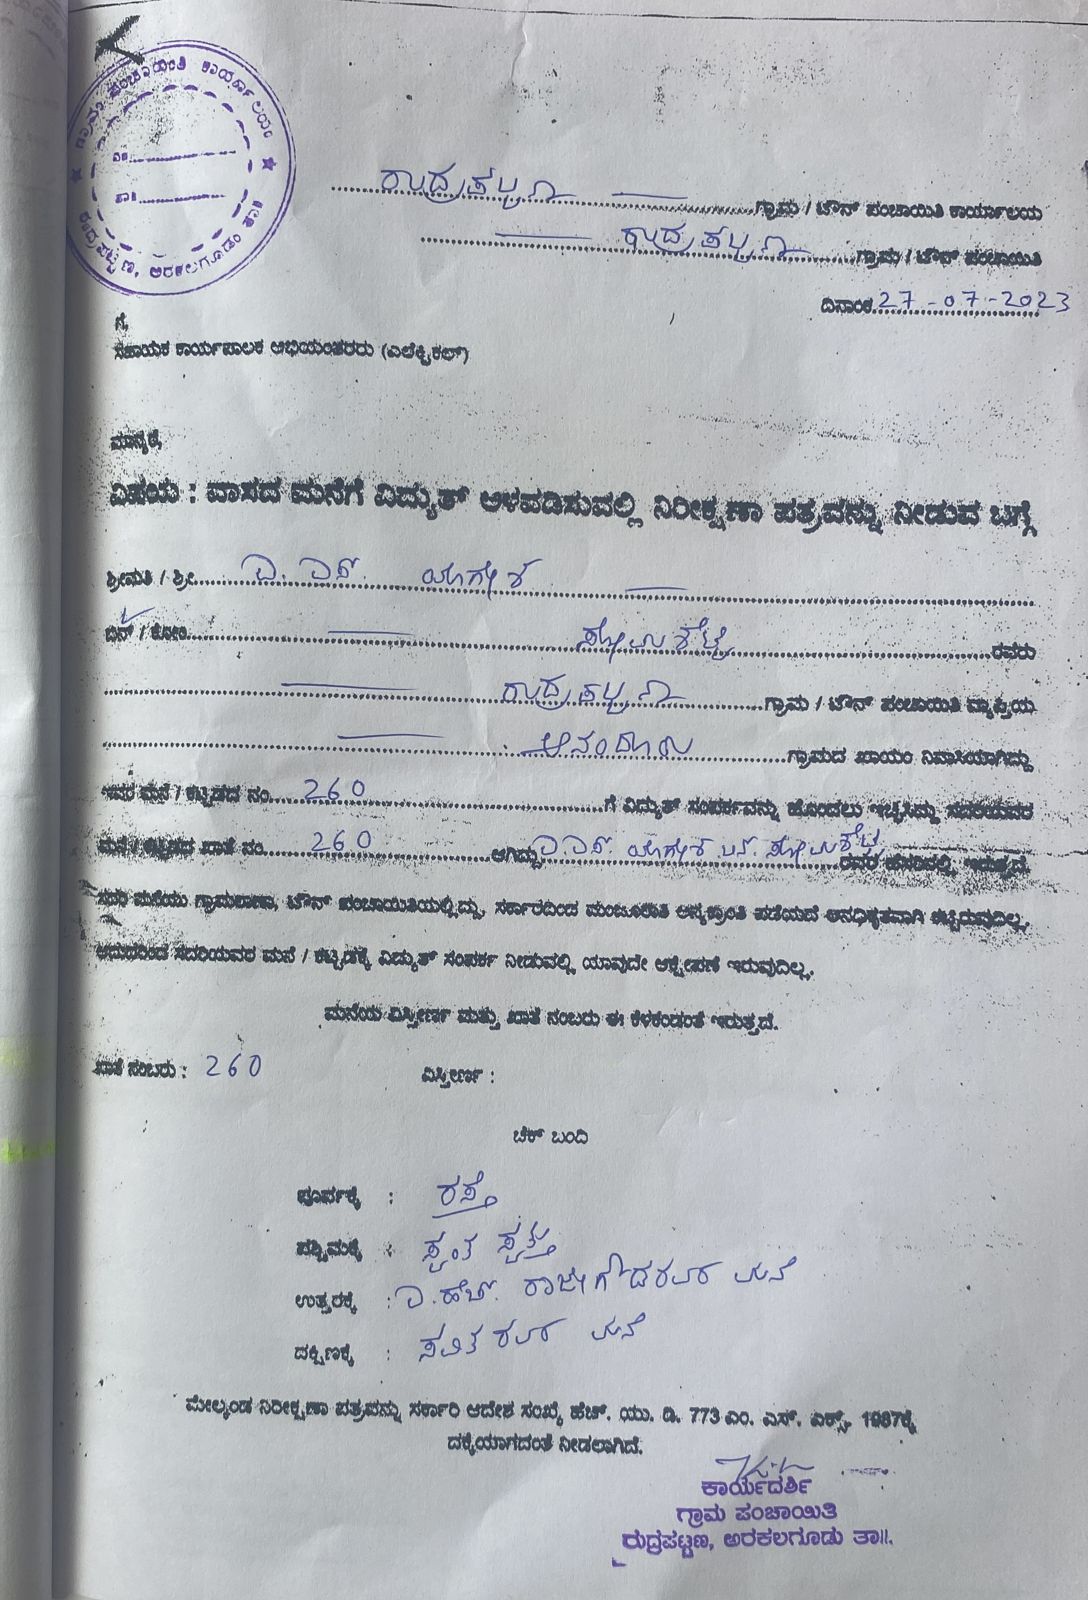 ಗ್ರಾಮ ಪಂಚಾಯಿತಿ ಕಾರ್ಯಾಲಯ
ರುದ್ರಪಟ್ಟಣ, ಅರಕಲಗೂಡು ತಾ॥
ರುದ್ರಪಟ್ಟಣ ಗ್ರಾಮ / ಟೌನ್ ಪಂಚಾಯಿತಿ ಕಾರ್ಯಾಲಯ
ರುದ್ರಪಟ್ಟಣ ಗ್ರಾಮ / ಟೌನ್ ಪಂಚಾಯಿತಿ
ದಿನಾಂಕ 27-07-2023
ಗೆ,
ಸಹಾಯಕ ಕಾರ್ಯಪಾಲಕ ಅಭಿಯಂತರರು (ಎಲೆಕ್ಟ್ರಿಕಲ್)
ಮಾನ್ಯರೆ,
ವಿಷಯ : ವಾಸದ ಮನೆಗೆ ವಿದ್ಯುತ್ ಅಳವಡಿಸುವಲ್ಲಿ ನಿರೀಕ್ಷಣಾ ಪತ್ರವನ್ನು ನೀಡುವ ಬಗ್ಗೆ
ಶ್ರೀಮತಿ / ಶ್ರೀ ಎ. ಎಸ್. ಯೋಗೇಶ
ಬಿನ್ / ಕೋಂ ರವರು
ರುದ್ರಪಟ್ಟಣ ಗ್ರಾಮ / ಟೌನ್ ಪಂಚಾಯಿತಿ ವ್ಯಾಪ್ತಿಯ
ಗ್ರಾಮದ ಖಾಯಂ ನಿವಾಸಿಯಾಗಿದ್ದು
ಇವರ ಮನೆ / ಕಟ್ಟಡದ ನಂ. 260 ಗೆ ವಿದ್ಯುತ್ ಸಂಪರ್ಕವನ್ನು ಹೊಂದಲು ಇಚ್ಛಿಸಿದ್ದು ಸದರಿಯವರ
ಮನೆ / ಕಟ್ಟಡದ ಖಾತೆ ನಂ. 260 ಆಗಿದ್ದು ಎ ಎಸ್ ಯೋಗೇಶ ಬಿನ್ ರವರ ಹೆಸರಿನಲ್ಲಿ ಇರುತ್ತದೆ.
ಸದರಿ ಮನೆಯು ಗ್ರಾಮಠಾಣಾ, ಟೌನ್ ಪಂಚಾಯಿತಿಯಲ್ಲಿದ್ದು, ಸರ್ಕಾರದಿಂದ ಮಂಜೂರಾತಿ ಅನ್ಯಕ್ರಾಂತಿ ಪಡೆಯದೆ ಅನಧಿಕೃತವಾಗಿ ಕಟ್ಟಿರುವುದಿಲ್ಲ.
ಆದುದರಿಂದ ಸದರಿಯವರ ಮನೆ / ಕಟ್ಟಡಕ್ಕೆ ವಿದ್ಯುತ್ ಸಂಪರ್ಕ ನೀಡುವಲ್ಲಿ ಯಾವುದೇ ಆಕ್ಷೇಪಣೆ ಇರುವುದಿಲ್ಲ.
ಮನೆಯ ವಿಸ್ತೀರ್ಣ ಮತ್ತು ಖಾತೆ ನಂಬರು ಈ ಕೆಳಕಂಡಂತೆ ಇರುತ್ತದೆ.
ಖಾತೆ ನಂಬರು : 260 ವಿಸ್ತೀರ್ಣ :
ಚೆಕ್ ಬಂದಿ
ಪೂರ್ವಕ್ಕೆ : ರಸ್ತೆ
ಪಶ್ಚಿಮಕ್ಕೆ : ಸ್ವಂತ ಸ್ವತ್ತು
ಉತ್ತರಕ್ಕೆ : ಎ. ಹೆಚ್. ರಾಜೇಗೌಡರವರ ಮನೆ
ದಕ್ಷಿಣಕ್ಕೆ : ಸವಿತ ರವರ ಮನೆ
ಮೇಲ್ಕಂಡ ನಿರೀಕ್ಷಣಾ ಪತ್ರವನ್ನು ಸರ್ಕಾರಿ ಆದೇಶ ಸಂಖ್ಯೆ ಹೆಚ್. ಯು. ಡಿ. 773 ಎಂ. ಎಸ್. ಎಕ್ಸ್. 1987ಕ್ಕೆ
ದಕ್ಕೆಯಾಗದಂತೆ ನೀಡಲಾಗಿದೆ.
ಕಾರ್ಯದರ್ಶಿ
ಗ್ರಾಮ ಪಂಚಾಯಿತಿ
ರುದ್ರಪಟ್ಟಣ, ಅರಕಲಗೂಡು ತಾ॥.